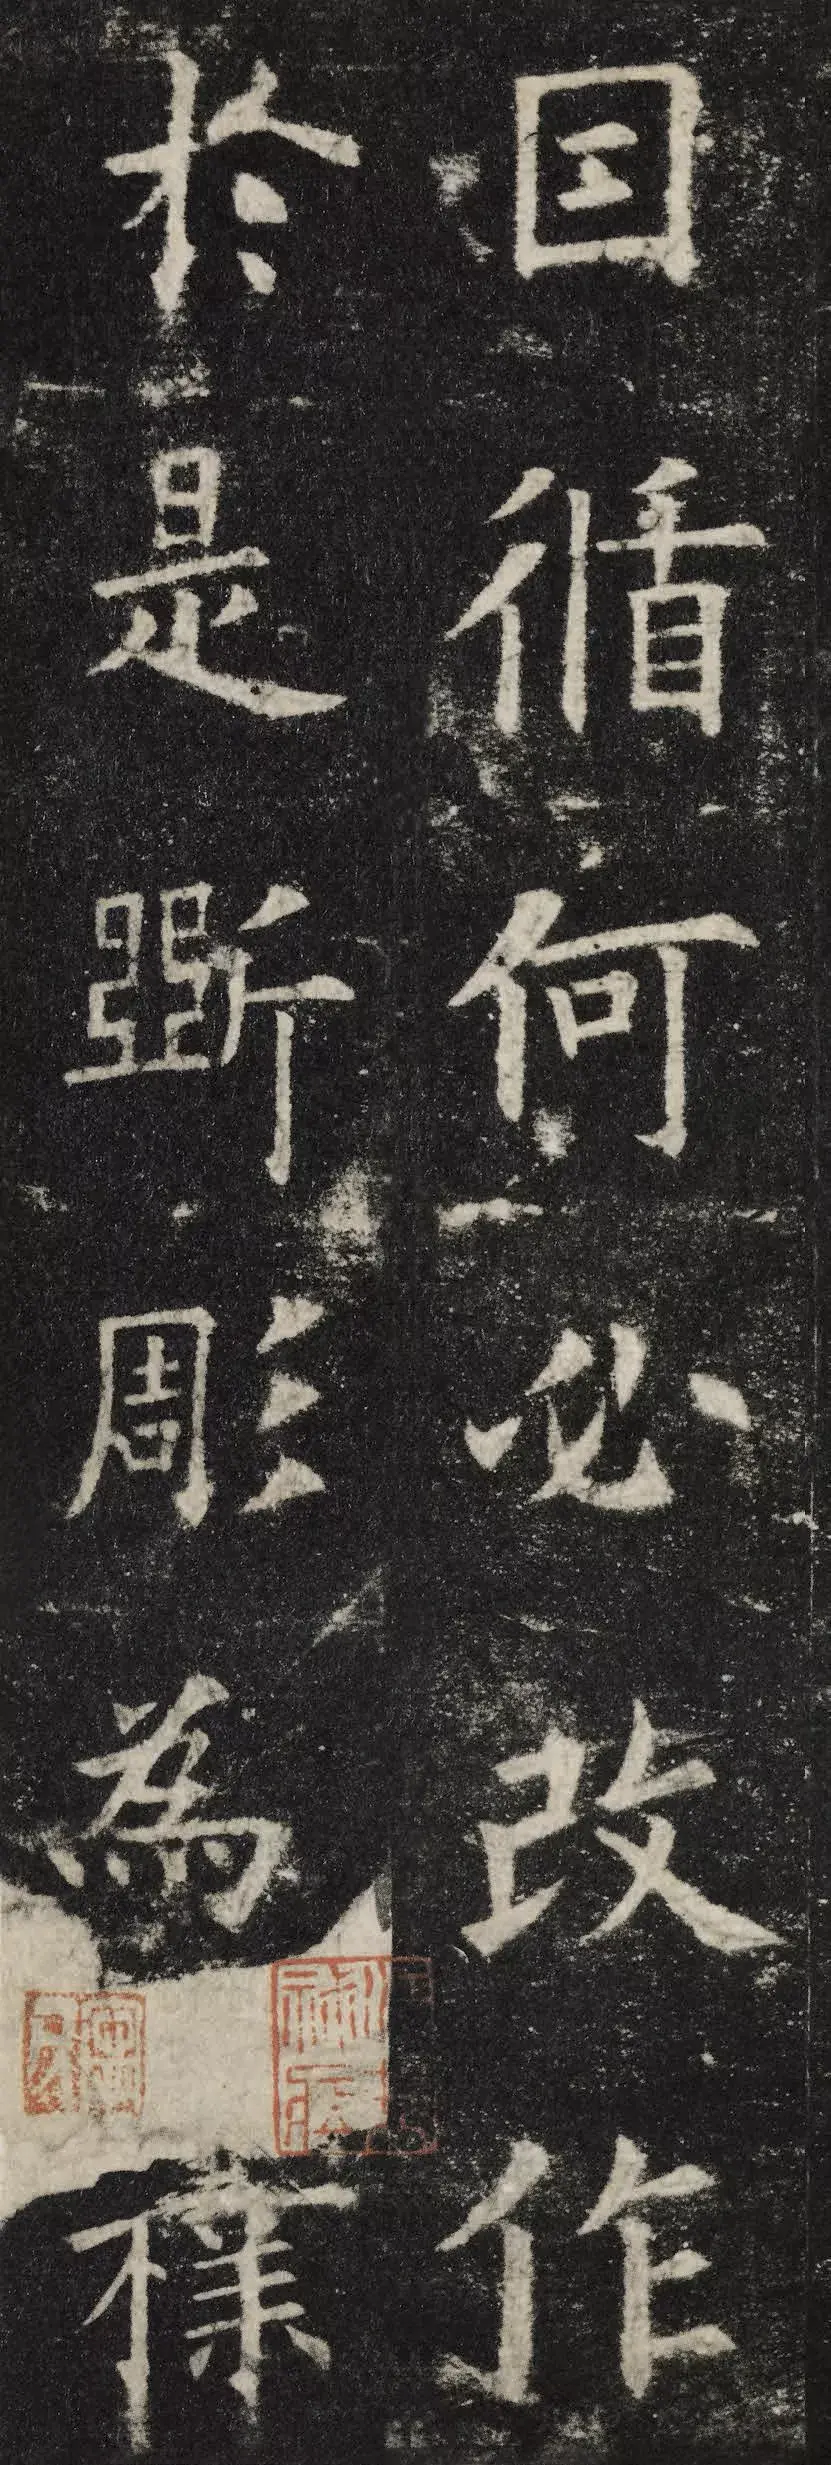 因循何必改作
於是斲彫為樸